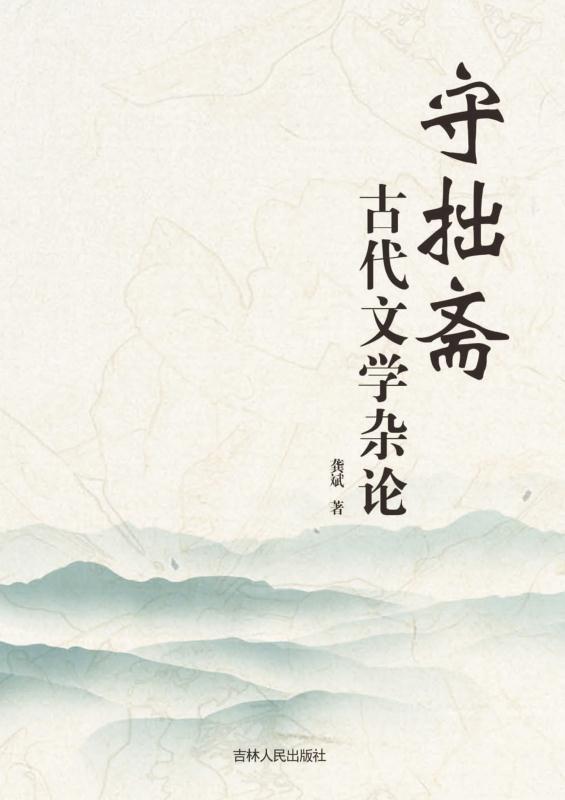 守拙斋
古代文学杂论
龚斌 著
吉林人民出版社